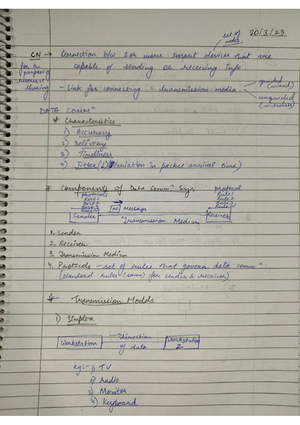 20/3/23
set of nodes
CN → Connection b/w 2 or more smart devices that are
for the purpose of resource sharing
capable of sending or receiving info.
- Link for connecting = transmission media
guided (wired)
unguided (wireless)
DATA COMMⁿ
* Characteristics
1) Accuracy
2) Delivery
3) Timeliness
4) Jitter (Variation in packet arrival time)
* Components of Data Commⁿ Sys.
protocols
Rule 1
Rule 2
protocol
Rule 1
Rule 2
Message
Sender
Transmission Medium
Receiver
1. Sender
2. Receiver
3. Transmission Medium
4. Protocols - set of rules that govern data commⁿ
(standard rules (same) for sender & receiver)
* Transmission Models
1) Simplex
Workstation
Direction of data
Workstation 2
eg:- 1) TV
2) Radio
3) Monitor
4) Keyboard